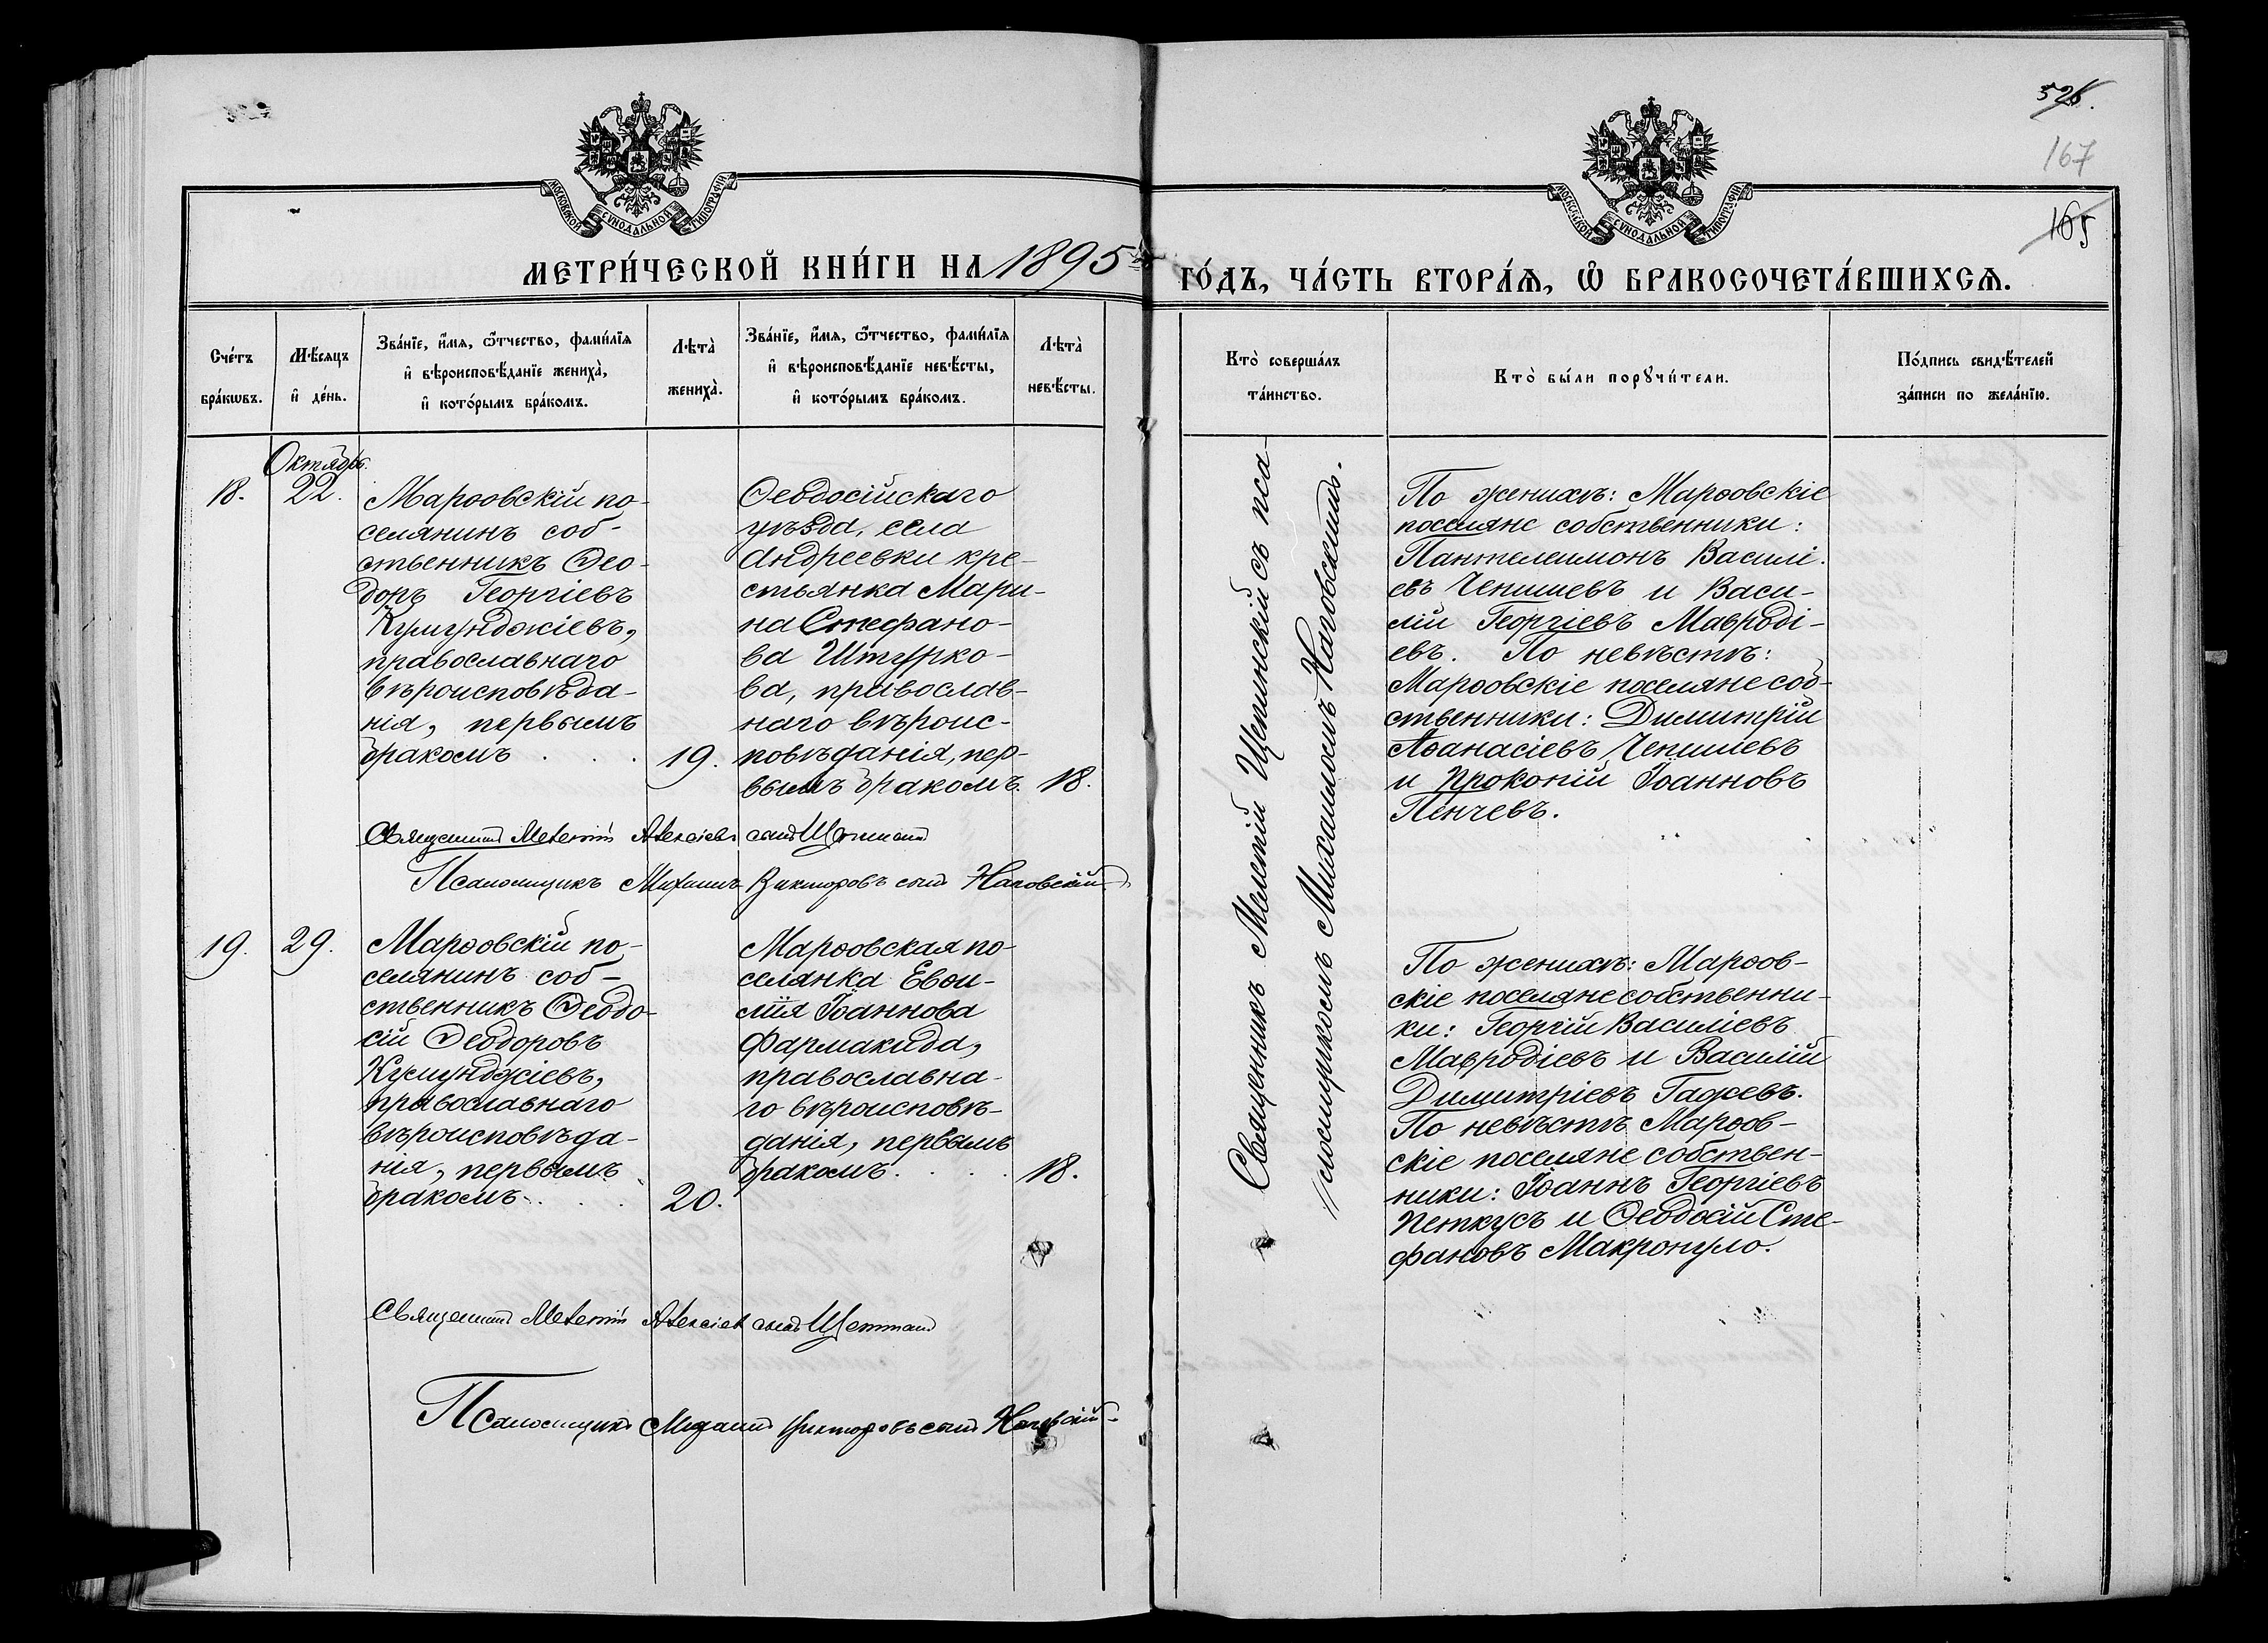 526.
167
165
МОСКОВСКОЙ СУНОДАЛЬНОЙ ТИПОГРАФИИ
МОСКОВСКОЙ СУНОДАЛЬНОЙ ТИПОГРАФИИ
МЕТРИ́ЧЕСКОЙ КНИ́ГИ НА 1895 ГО́ДЪ, ЧА́СТЬ ВТОРА́Ѧ, Ѽ БРАКОСОЧЕТА́ВШИХСѦ.
Сче́тъ
бра́кѡвъ.
Мѣ́сяцъ
и҆ де́нь.
Зва́нїе, и҆́мѧ, ѻ҆́тчество, фами́лїѧ
и҆ вѣроисповѣ́данїе жениха̀,
и҆ кото́рымъ бра́комъ.
Лѣта̀
жениха̀.
Зва́нїе, и҆́мѧ, ѻ҆́тчество, фами́лїѧ
и҆ вѣроисповѣ́данїе невѣ́сты,
и҆ кото́рымъ бра́комъ.
Лѣта̀
невѣ́сты.
Кто̀ соверша́лъ
та́инство.
Кто̀ бы́ли порꙋчи́тели.
По́дпись свидѣ́телей
за́писи по жела́нїю.
18.
Октябрь.
22.
Марѳовскій по-
селянинъ соб-
ственникъ Ѳео-
доръ Георгіевъ
Кумунджіевъ,
православнаго
вѣроисповѣда-
нія, первымъ
бракомъ . . .
19.
Ѳеодосійскаго
уѣзда, села
Андреевки кре-
стьянка Мари-
на Стефано-
ва Штурко-
ва, православ-
наго вѣроис-
повѣданія, пер-
вымъ бракомъ.
18.
Священникъ Мелетій Щепинскій съ пса-
ломщикомъ Михаиломъ Наговскимъ.
По женихѣ: Марѳовскіе
поселяне собственники:
Пантелеимонъ Василі-
евъ Чепишевъ и Васи-
лій Георгіевъ Мавроді-
евъ. По невѣстѣ:
Марѳовскіе поселяне соб-
ственники: Димитрій
Аѳанасіевъ Чепишевъ
и Прокопій Іоанновъ
Пенчевъ.
Священникъ Мелетій Алексіевъ сынъ
Псаломщикъ Михаилъ Викторовъ сынъ Наговскій
19.
29.
Марѳовскій по-
селянинъ соб-
ственникъ Ѳеодо-
сій Ѳеодоровъ
Кумунджіевъ,
православнаго
вѣроисповѣда-
нія, первымъ
бракомъ . . .
20.
Марѳовская по-
селянка Евѳи-
мія Іоаннова
Фармакида,
православна-
го вѣроисповѣ-
данія, первымъ
бракомъ . . .
18.
По женихѣ: Марѳов-
скіе поселяне собственни-
ки: Георгій Василіевъ
Мавродіевъ и Василій
Димитріевъ Гаджевъ.
По невѣстѣ Марѳов-
скіе поселяне собствен-
ники: Іоаннъ Георгіевъ
Петкусъ и Ѳеодосій Сте-
фановъ Макропуло.
Священникъ Мелетій Алексіевъ сынъ
Псаломщикъ Михаилъ Викторовъ сынъ Наговскій